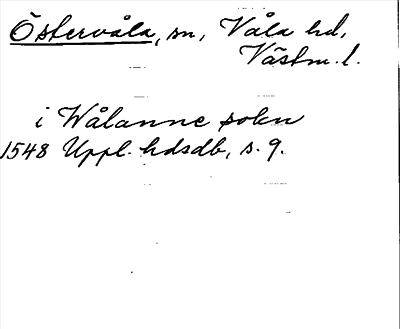 Östervåla, sn, Våla hd,
Västm. l.
i Wålanne sokn
1548 Uppl. hdsdb, s. 9.